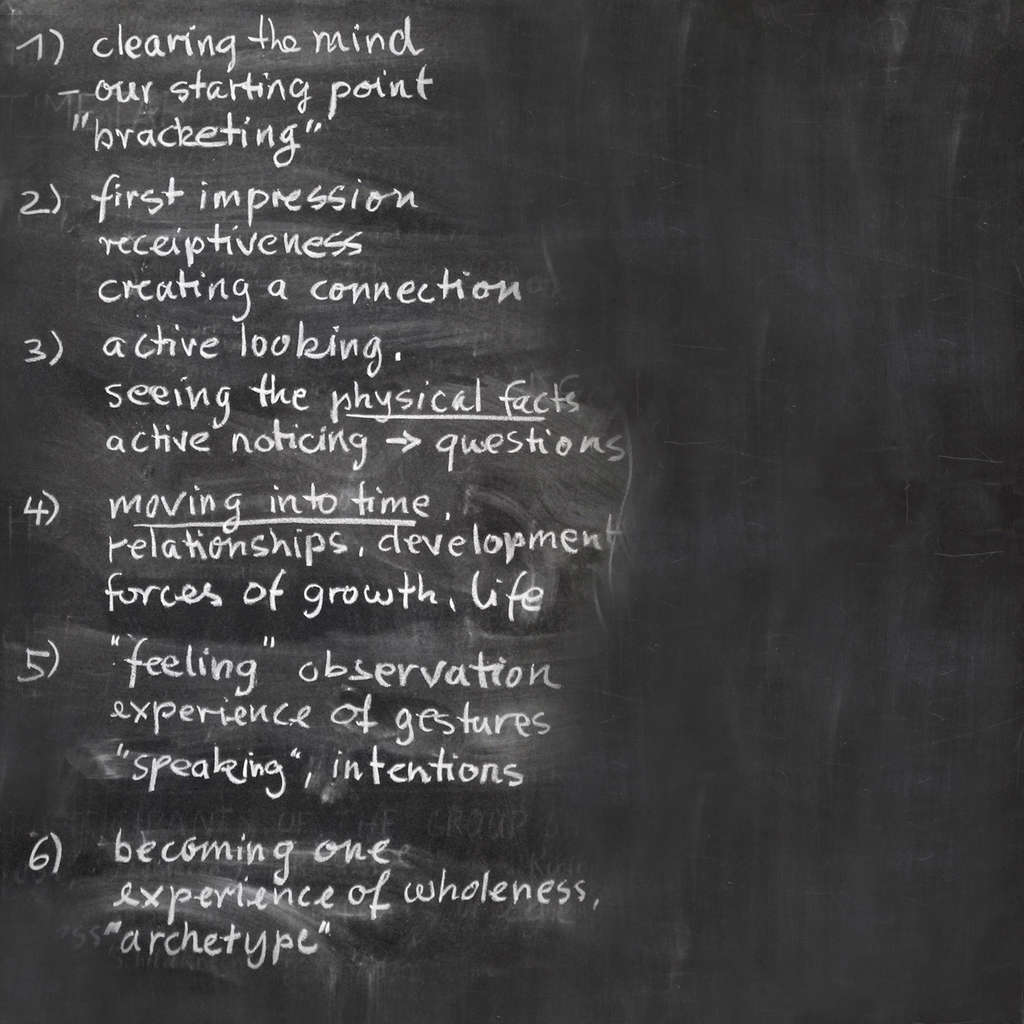 1) clearing the mind
- our starting point
"bracketing"
2) first impression
receiptiveness
creating a connection
3) active looking.
seeing the physical facts
active noticing → questions
4) moving into time,
relationships, development
forces of growth, life
5) "feeling" observation
experience of gestures
"speaking", intentions
OF THE GROUP
6) becoming one
experience of wholeness,
"archetype"